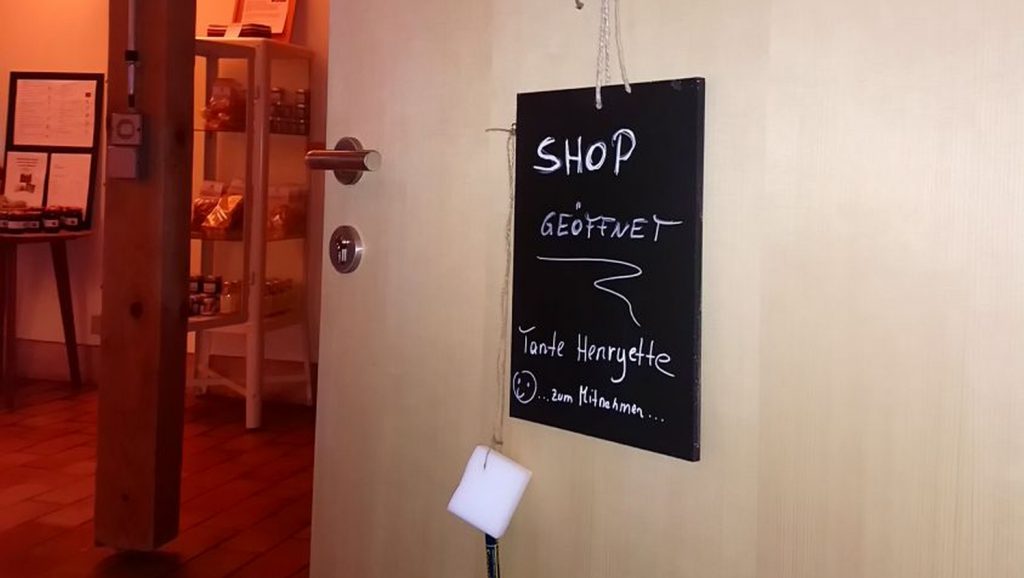 SHOP
GEÖFFNET
Tante Henryette
...zum Mitnahmen...